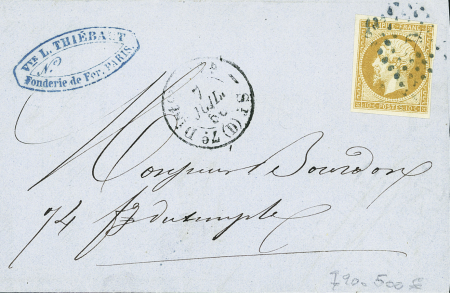 Vve L. THIÉBAUT
Fonderie de Fer, PARIS.
EMPIRE FRANC.
10 C. POSTES 10 C.
7
JUIL
60
Monsieur Bourdon
74 fg du temple
790-500 €